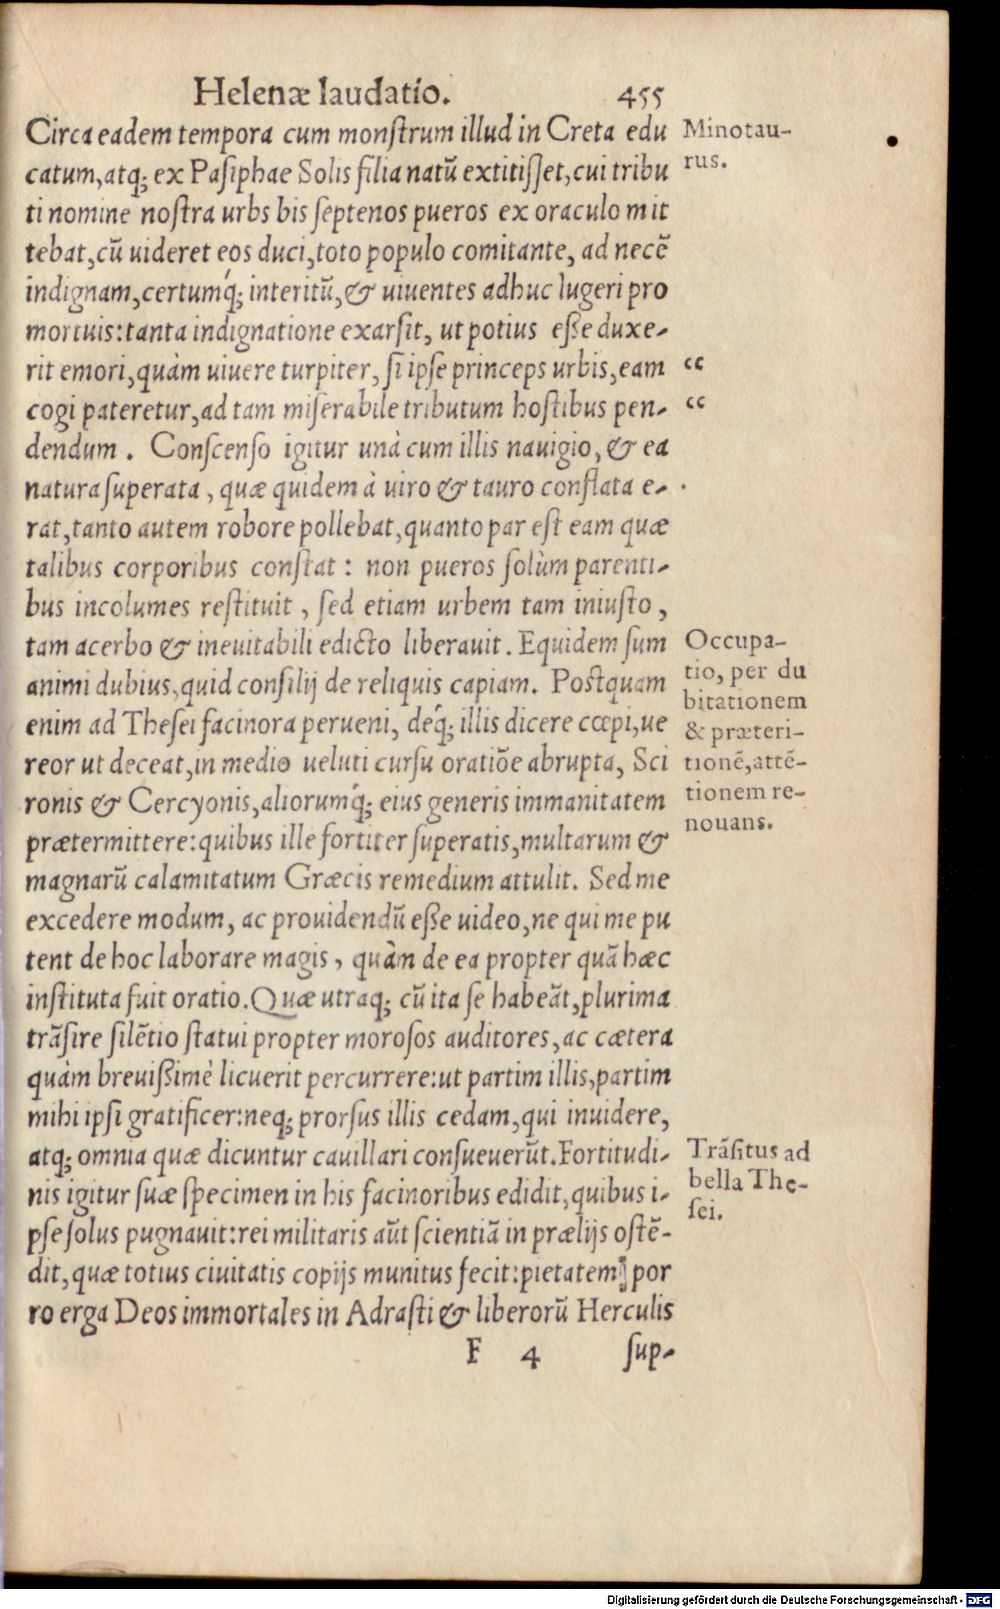 Helenæ laudatio. 455
Circa eadem tempora cum monſtrum illud in Creta edu
catum, atq; ex Paſiphae Solis filia natũ extitiſſet, cui tribu
ti nomine noſtra urbs bis ſeptenos pueros ex oraculo mit
tebat, cũ uideret eos duci, toto populo comitante, ad necẽ
indignam, certumq́; interitũ, & uiuentes adhuc lugeri pro
mortuis: tanta indignatione exarſit, ut potius eſſe duxe-
rit emori, quàm uiuere turpiter, ſi ipſe princeps urbis, eam
cogi pateretur, ad tam miſerabile tributum hoſtibus pen-
dendum. Conſcenſo igitur unà cum illis nauigio, & ea
natura ſuperata, quæ quidem à uiro & tauro conflata e-
rat, tanto autem robore pollebat, quanto par eſt eam quæ
talibus corporibus conſtat: non pueros ſolùm parenti-
bus incolumes reſtituit, ſed etiam urbem tam iniuſto,
tam acerbo & ineuitabili edicto liberauit. Equidem ſum
animi dubius, quid conſilij de reliquis capiam. Poſtquam
enim ad Theſei facinora perueni, deq́; illis dicere cœpi, ue
reor ut deceat, in medio ueluti curſu oratiõe abrupta, Sci
ronis & Cercyonis, aliorumq́; eius generis immanitatem
prætermittere: quibus ille fortiter ſuperatis, multarum &
magnarũ calamitatum Græcis remedium attulit. Sed me
excedere modum, ac prouidendũ eſſe uideo, ne qui me pu
tent de hoc laborare magis, quàm de ea propter quã hæc
inſtituta fuit oratio. Quæ utraq; cũ ita ſe habeãt, plurima
trãſire ſilẽtio ſtatui propter moroſos auditores, ac cætera
quàm breuiſſimè licuerit percurrere: ut partim illis, partim
mihi ipſi gratificer: neq; prorſus illis cedam, qui inuidere,
atq; omnia quæ dicuntur cauillari conſueuerũt. Fortitudi-
nis igitur ſuæ ſpecimen in his facinoribus edidit, quibus i-
pſe ſolus pugnauit: rei militaris aũt ſcientiã in prælijs oſtẽ-
dit, quæ totius ciuitatis copijs munitus fecit: pietatem por
ro erga Deos immortales in Adraſti & liberorũ Herculis
F 4 ſup-
Minotau-
rus.
“
“
Occupa-
tio, per du
bitationem
& præteri-
tionẽ, attẽ-
tionem re-
nouans.
Trãſitus ad
bella The-
ſei.
Digitalisierung gefördert durch die Deutsche Forschungsgemeinschaft - DFG